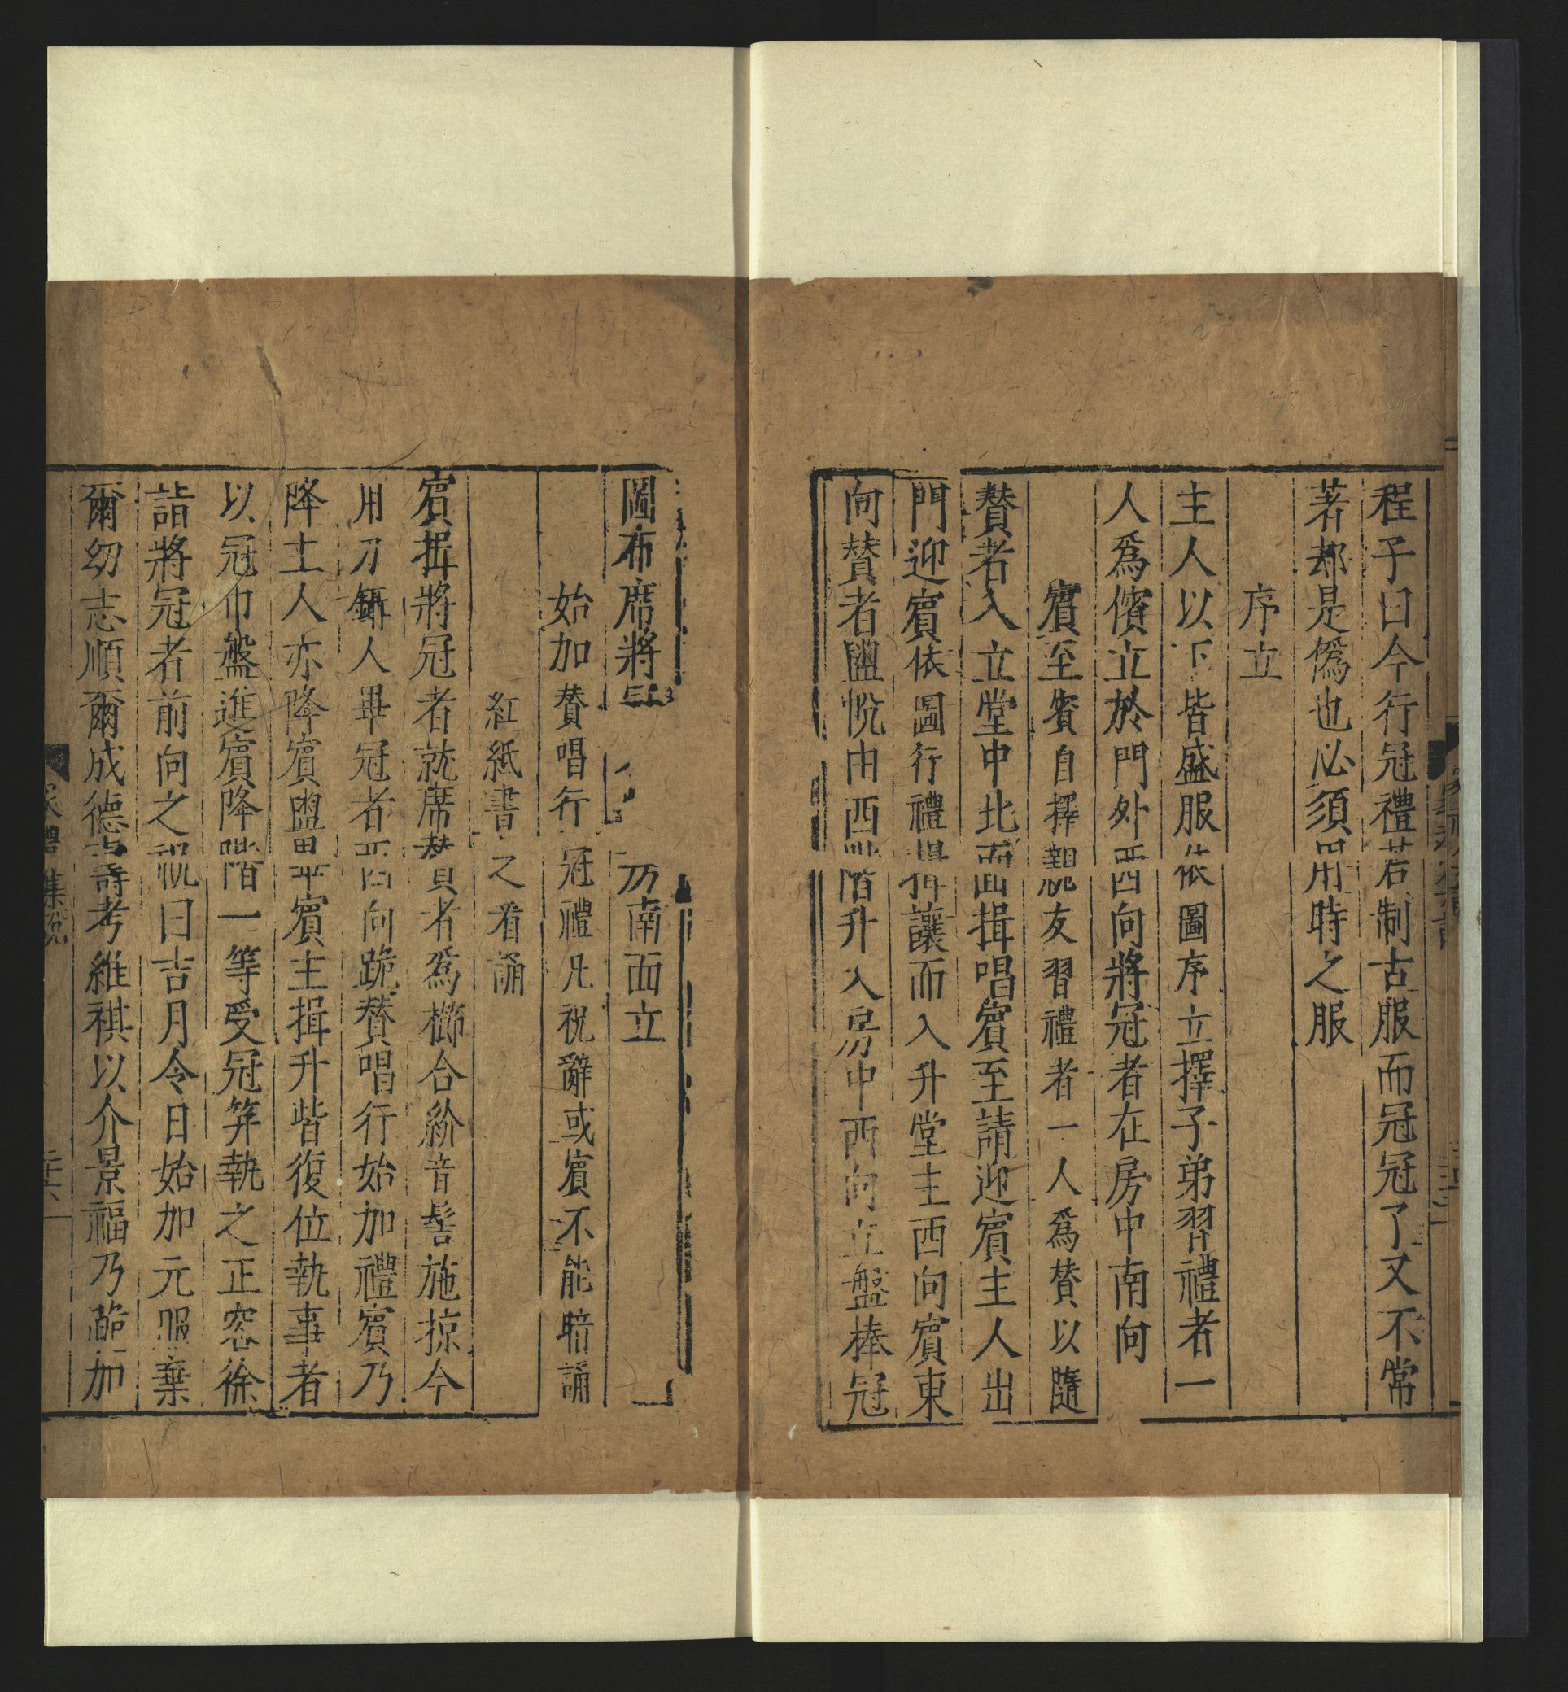 程子曰今行冠禮若制古服而冠冠了又不常
著却是僞也必須用時之服
序立
主人以下皆盛服依圖序立擇子弟習禮者一
人爲儐立於門外西向將冠者在房中南向
賓至賓自擇親友習禮者一人爲賛以隨
賛者入立堂中北面揖唱賓至請迎賓主人出
門迎賓依圖行禮揖讓而入升堂主西向賓東
向賛者盥帨由西階升入房中西向立盤捧冠
圖布席將 乃南面立
始加賛唱行冠禮凡祝辭或賓不能暗誦
紅紙書之看誦
賓揖將冠者就席賛者爲櫛合紒音髻施掠今
用刀鑷人畢冠者西向跪賛唱行始加禮賓乃
降主人亦降賓盥畢賓主揖升階復位執事者
以冠巾盤進賓降階一等受冠笄執之正容徐
詣將冠者前向之祝曰吉月令日始加元服棄
爾幼志順爾成德壽考維祺以介景福乃跪加
家禮集說